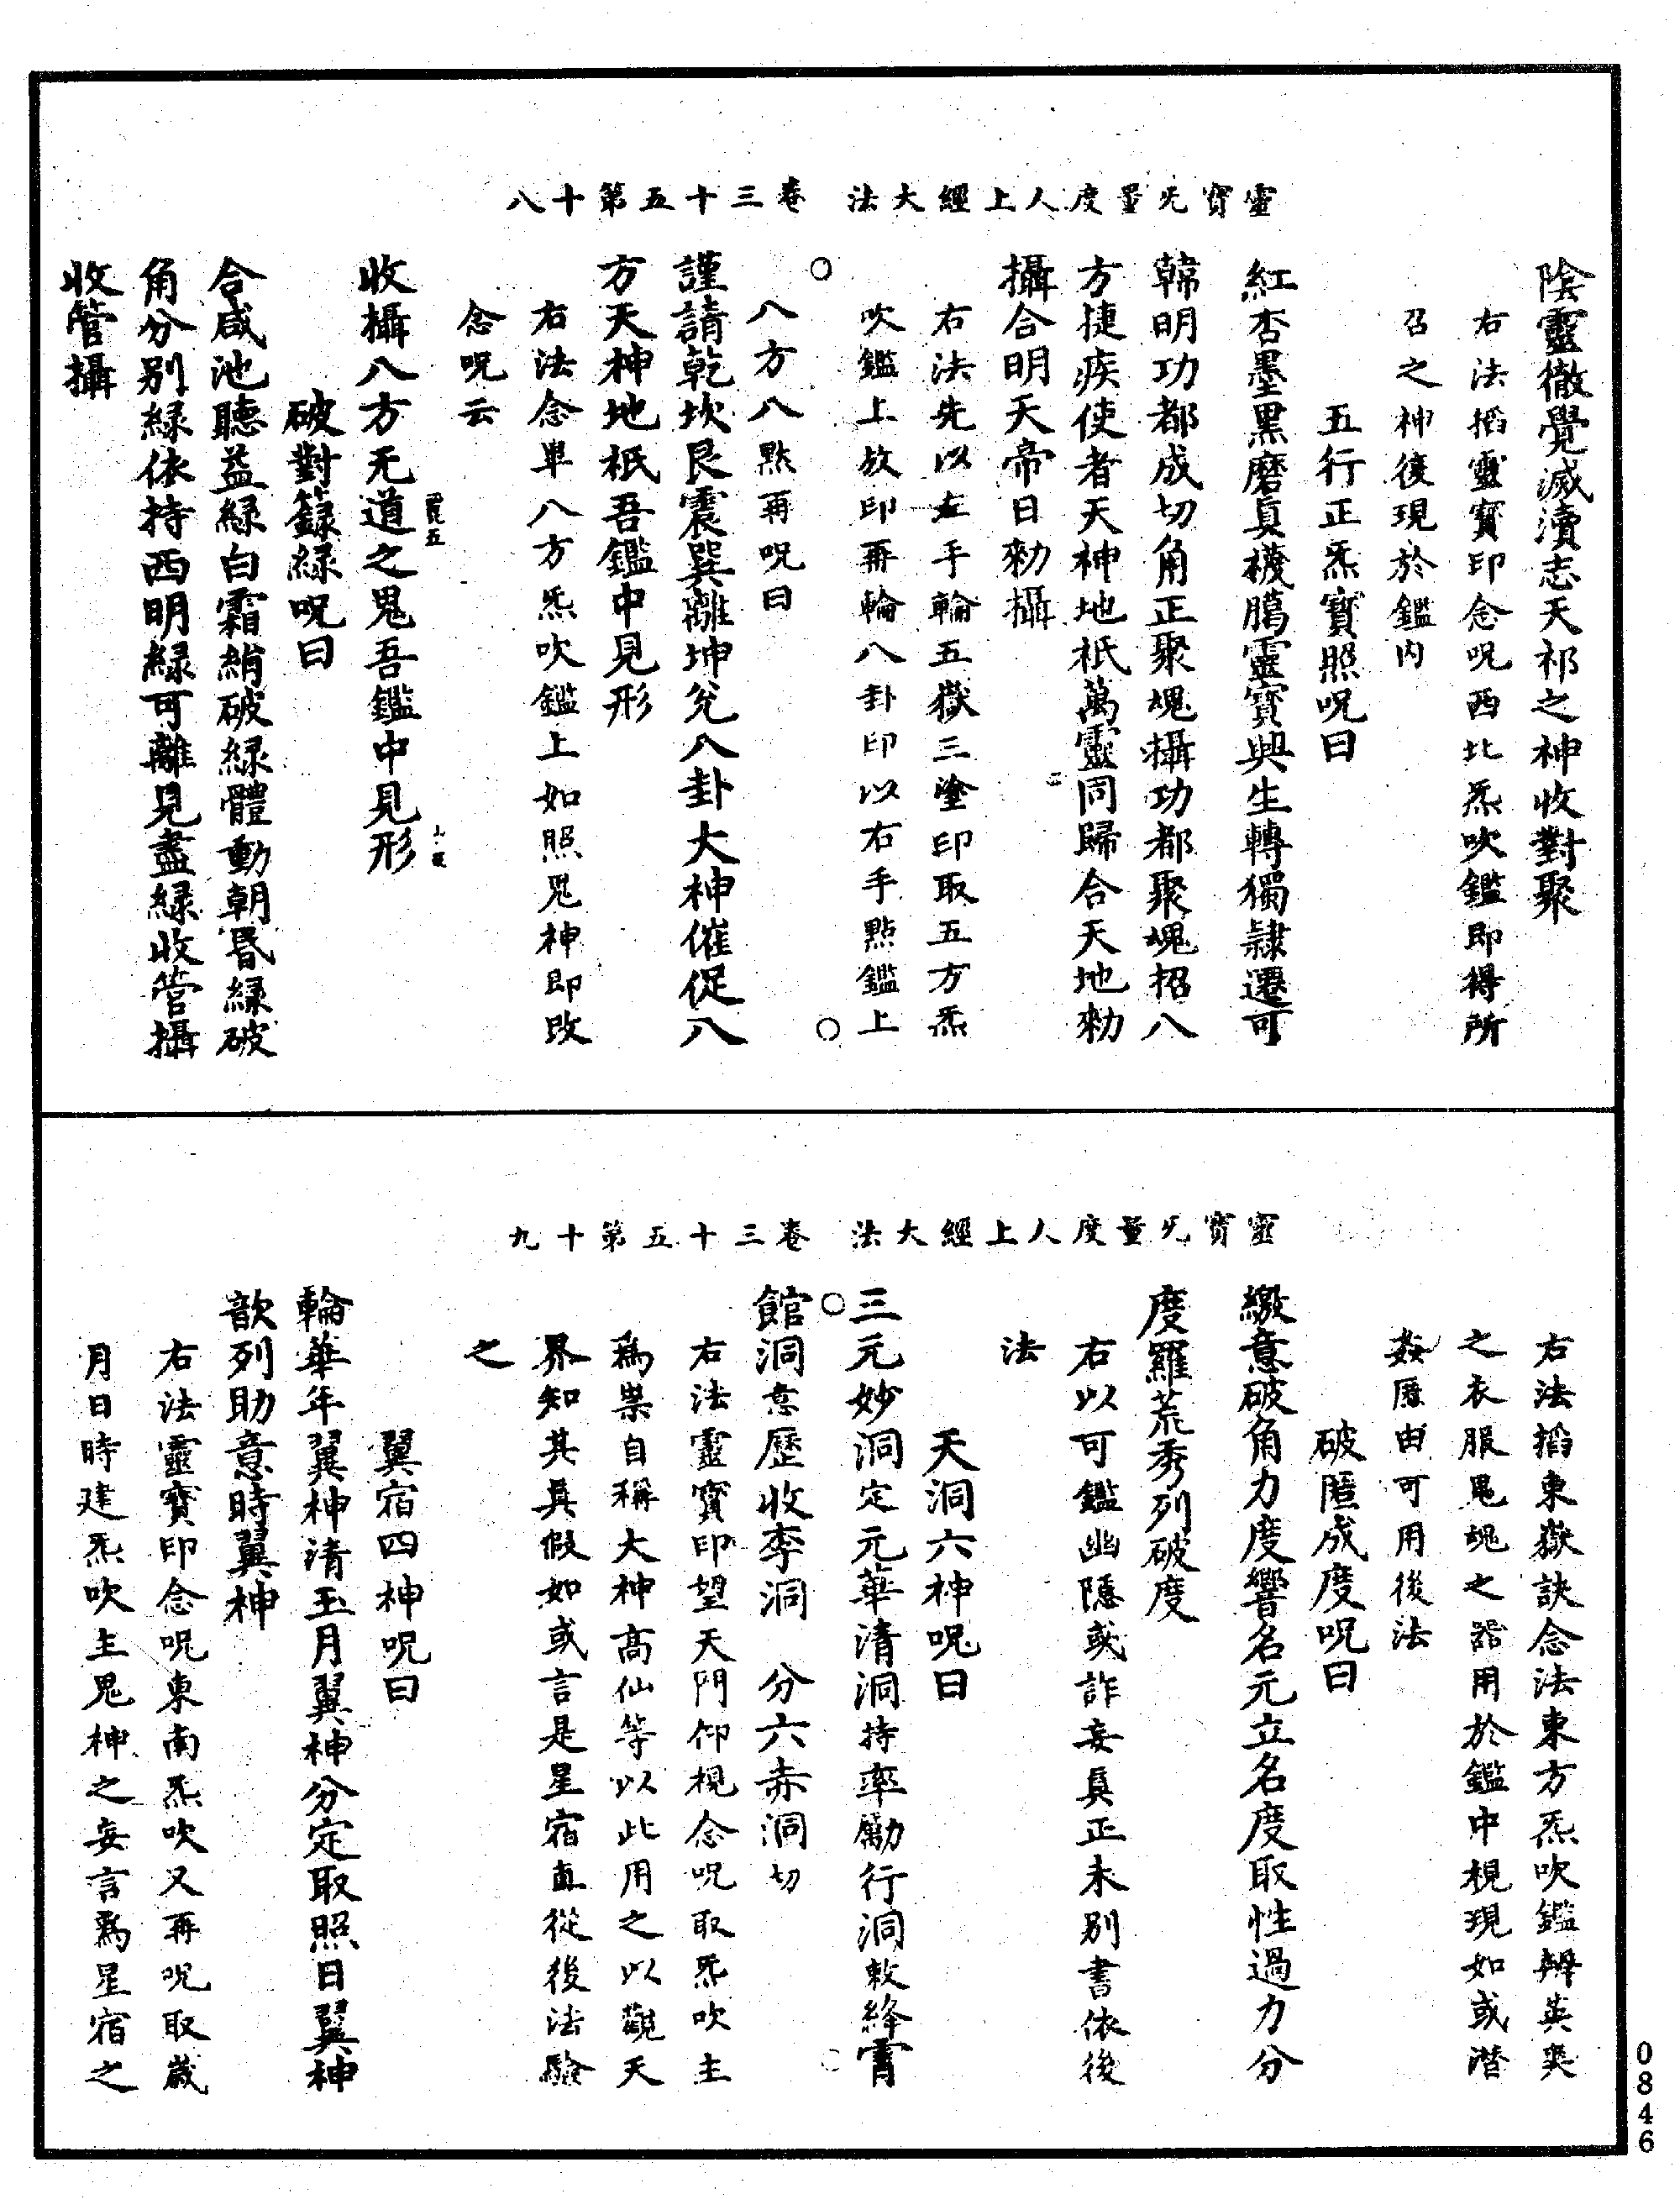 靈寶无量度人上經大法　卷三十五第十八
陰靈徹覺滅瀆志天祁之神收對聚
右法搯靈寶印念呪西北炁吹鑑即得所
召之神後現於鑑內
五行正炁寶照呪曰
紅杏墨黑磨真襪臈靈寶與生轉獨隷遷可
韓明功都成切角正聚塊攝功都聚塊招八
方捷疾使者天神地祇萬靈同歸合天地勑
攝合明天帝日勑攝
右法先以左手輪五嶽三塗印取五方炁
吹鑑上放印再輪八卦印以右手點鑑上
八方八點再呪曰
謹請乾坎艮震巽離坤兊八卦大神催促八
方天神地祇吾鑑中見形
右法念畢八方炁吹鑑上如照鬼神即改
念呪云
收攝八方无道之鬼吾鑑中見形
破對籙緑呪曰
合咸池聽益緑白霜綃破緑體動朝昏緑破
角分別緑依持西明緑可離見盡緑收管攝
收管攝
靈寶无量度人上經大法　卷三十五第十九
右法搯東嶽訣念法東方炁吹鑑辨英爽
之衣服鬼魂之器用於鑑中視現如或潛
姦匿由可用後法
破匿成度呪曰
繳意破角力度響名元立名度取性過力分
度羅荒秀列破度
右以可鑑幽隱或詐妄真正未別書依後
法
天洞六神呪曰
三元妙洞定元華清洞持率勵行洞敕絳霄
館洞意歷收李洞　分六赤洞切
右法靈寶印望天門仰視念呪取炁吹主
為祟自稱大神高仙等以此用之以觀天
界知其真假如或言是星宿直從後法驗
之
翼宿四神呪曰
輪華年翼神清玉月翼神分定取照日翼神
歆列助意時翼神
右法靈寶印念呪東南炁吹又再呪取歲
月日時建炁吹主鬼神之妄言爲星宿之
0846